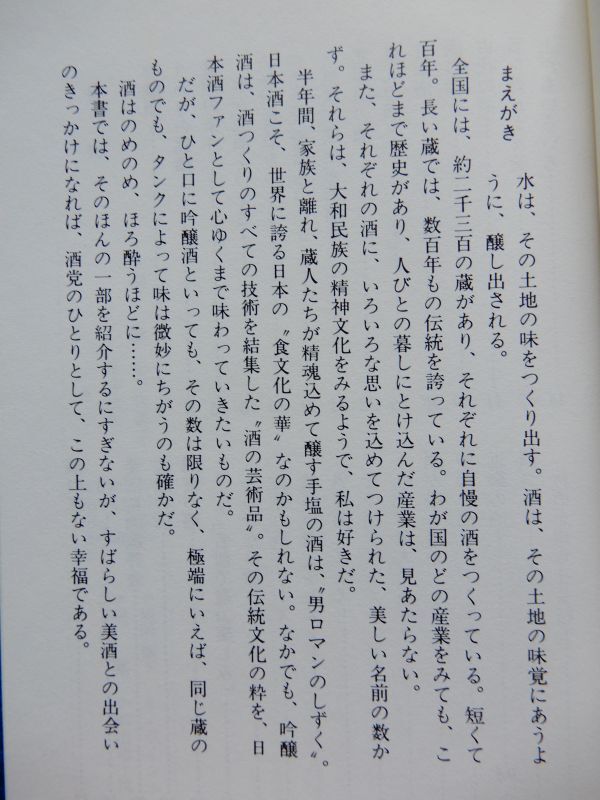 まえがき
水は、その土地の味をつくり出す。酒は、その土地の味覚にあうよ
うに、醸し出される。
全国には、約二千三百の蔵があり、それぞれに自慢の酒をつくっている。短くて
百年。長い蔵では、数百年もの伝統を誇っている。わが国のどの産業をみても、こ
れほどまで歴史があり、人びとの暮しにとけ込んだ産業は、見あたらない。
また、それぞれの酒に、いろいろな思いを込めてつけられた、美しい名前の数か
ず。それらは、大和民族の精神文化をみるようで、私は好きだ。
半年間、家族と離れ、蔵人たちが精魂込めて醸す手塩の酒は、〝男ロマンのしずく〟。
日本酒こそ、世界に誇る日本の〝食文化の華〟なのかもしれない。なかでも、吟醸
酒は、酒つくりのすべての技術を結集した〝酒の芸術品〟。その伝統文化の粋を、日
本酒ファンとして心ゆくまで味わっていきたいものだ。
だが、ひと口に吟醸酒といっても、その数は限りなく、極端にいえば、同じ蔵の
ものでも、タンクによって味は微妙にちがうのも確かだ。
酒はのめのめ、ほろ酔うほどに……。
本書では、そのほんの一部を紹介するにすぎないが、すばらしい美酒との出会い
のきっかけになれば、酒党のひとりとして、この上もない幸福である。